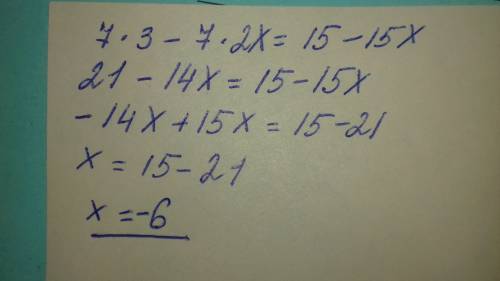 7·3 - 7·2x = 15 - 15x
21 - 14x = 15 - 15x
-14x + 15x = 15 - 21
x = 15 - 21
x = -6